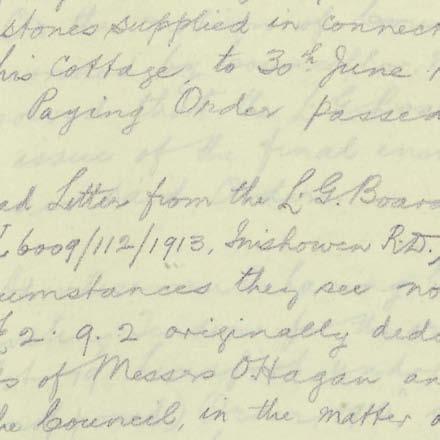 stones supplied in connect
his Cottage, to 30th June
Paying Order passed
ad Letter from the L.G. Board
6009/112/1913, Inishowen R.D.
cumstances they see no
£2.9.2 originally dedu
s of Messrs O'Hagan an
he Council, in the matter o